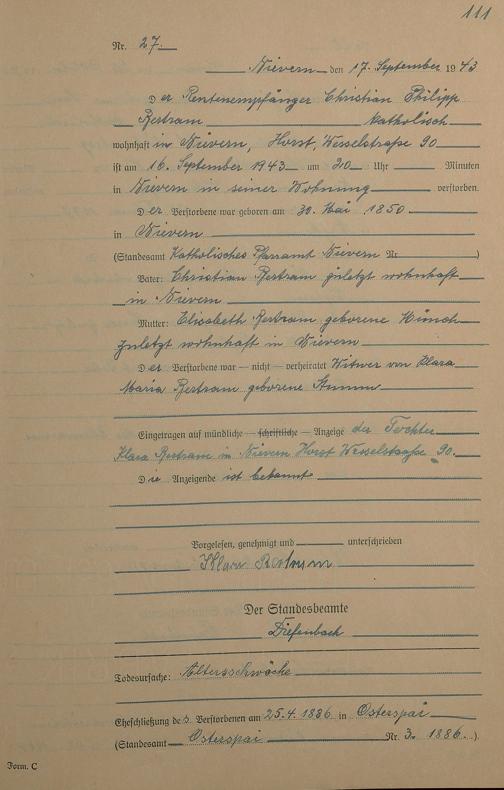 111
Nr. 27.
Nievern den 17. September 1943
Der Rentenempfänger Christian Philipp
Bertram katholisch
wohnhaft in Nievern, Horst, Wesselstraße 90
ist am 16. September 1943 um 20 Uhr Minuten
in Nievern in seiner Wohnung verstorben.
Der Verstorbene war geboren am 30. Mai 1850
in Nievern
(Standesamt Katholisches Pfarramt Nievern Nr. )
Vater: Christian Bertram zuletzt wohnhaft
in Nievern
Mutter: Elisabeth Bertram geborene Münch
zuletzt wohnhaft in Nievern
Der Verstorbene war — nicht — verheiratet Witwer von Klara
Maria Bertram geborene
Eingetragen auf mündliche — schriftliche — Anzeige der Tochter
Klara Bertram in Nievern Horst Wesselstraße 90.
Die Anzeigende ist bekannt
Vorgelesen, genehmigt und unterschrieben
Klara Bertram
Der Standesbeamte
Diefenbach
Todesursache: Altersschwäche
Eheschließung des Verstorbenen am 25.4.1886 in Osterspai
(Standesamt Osterspai Nr. 3. 1886.)
Form. C